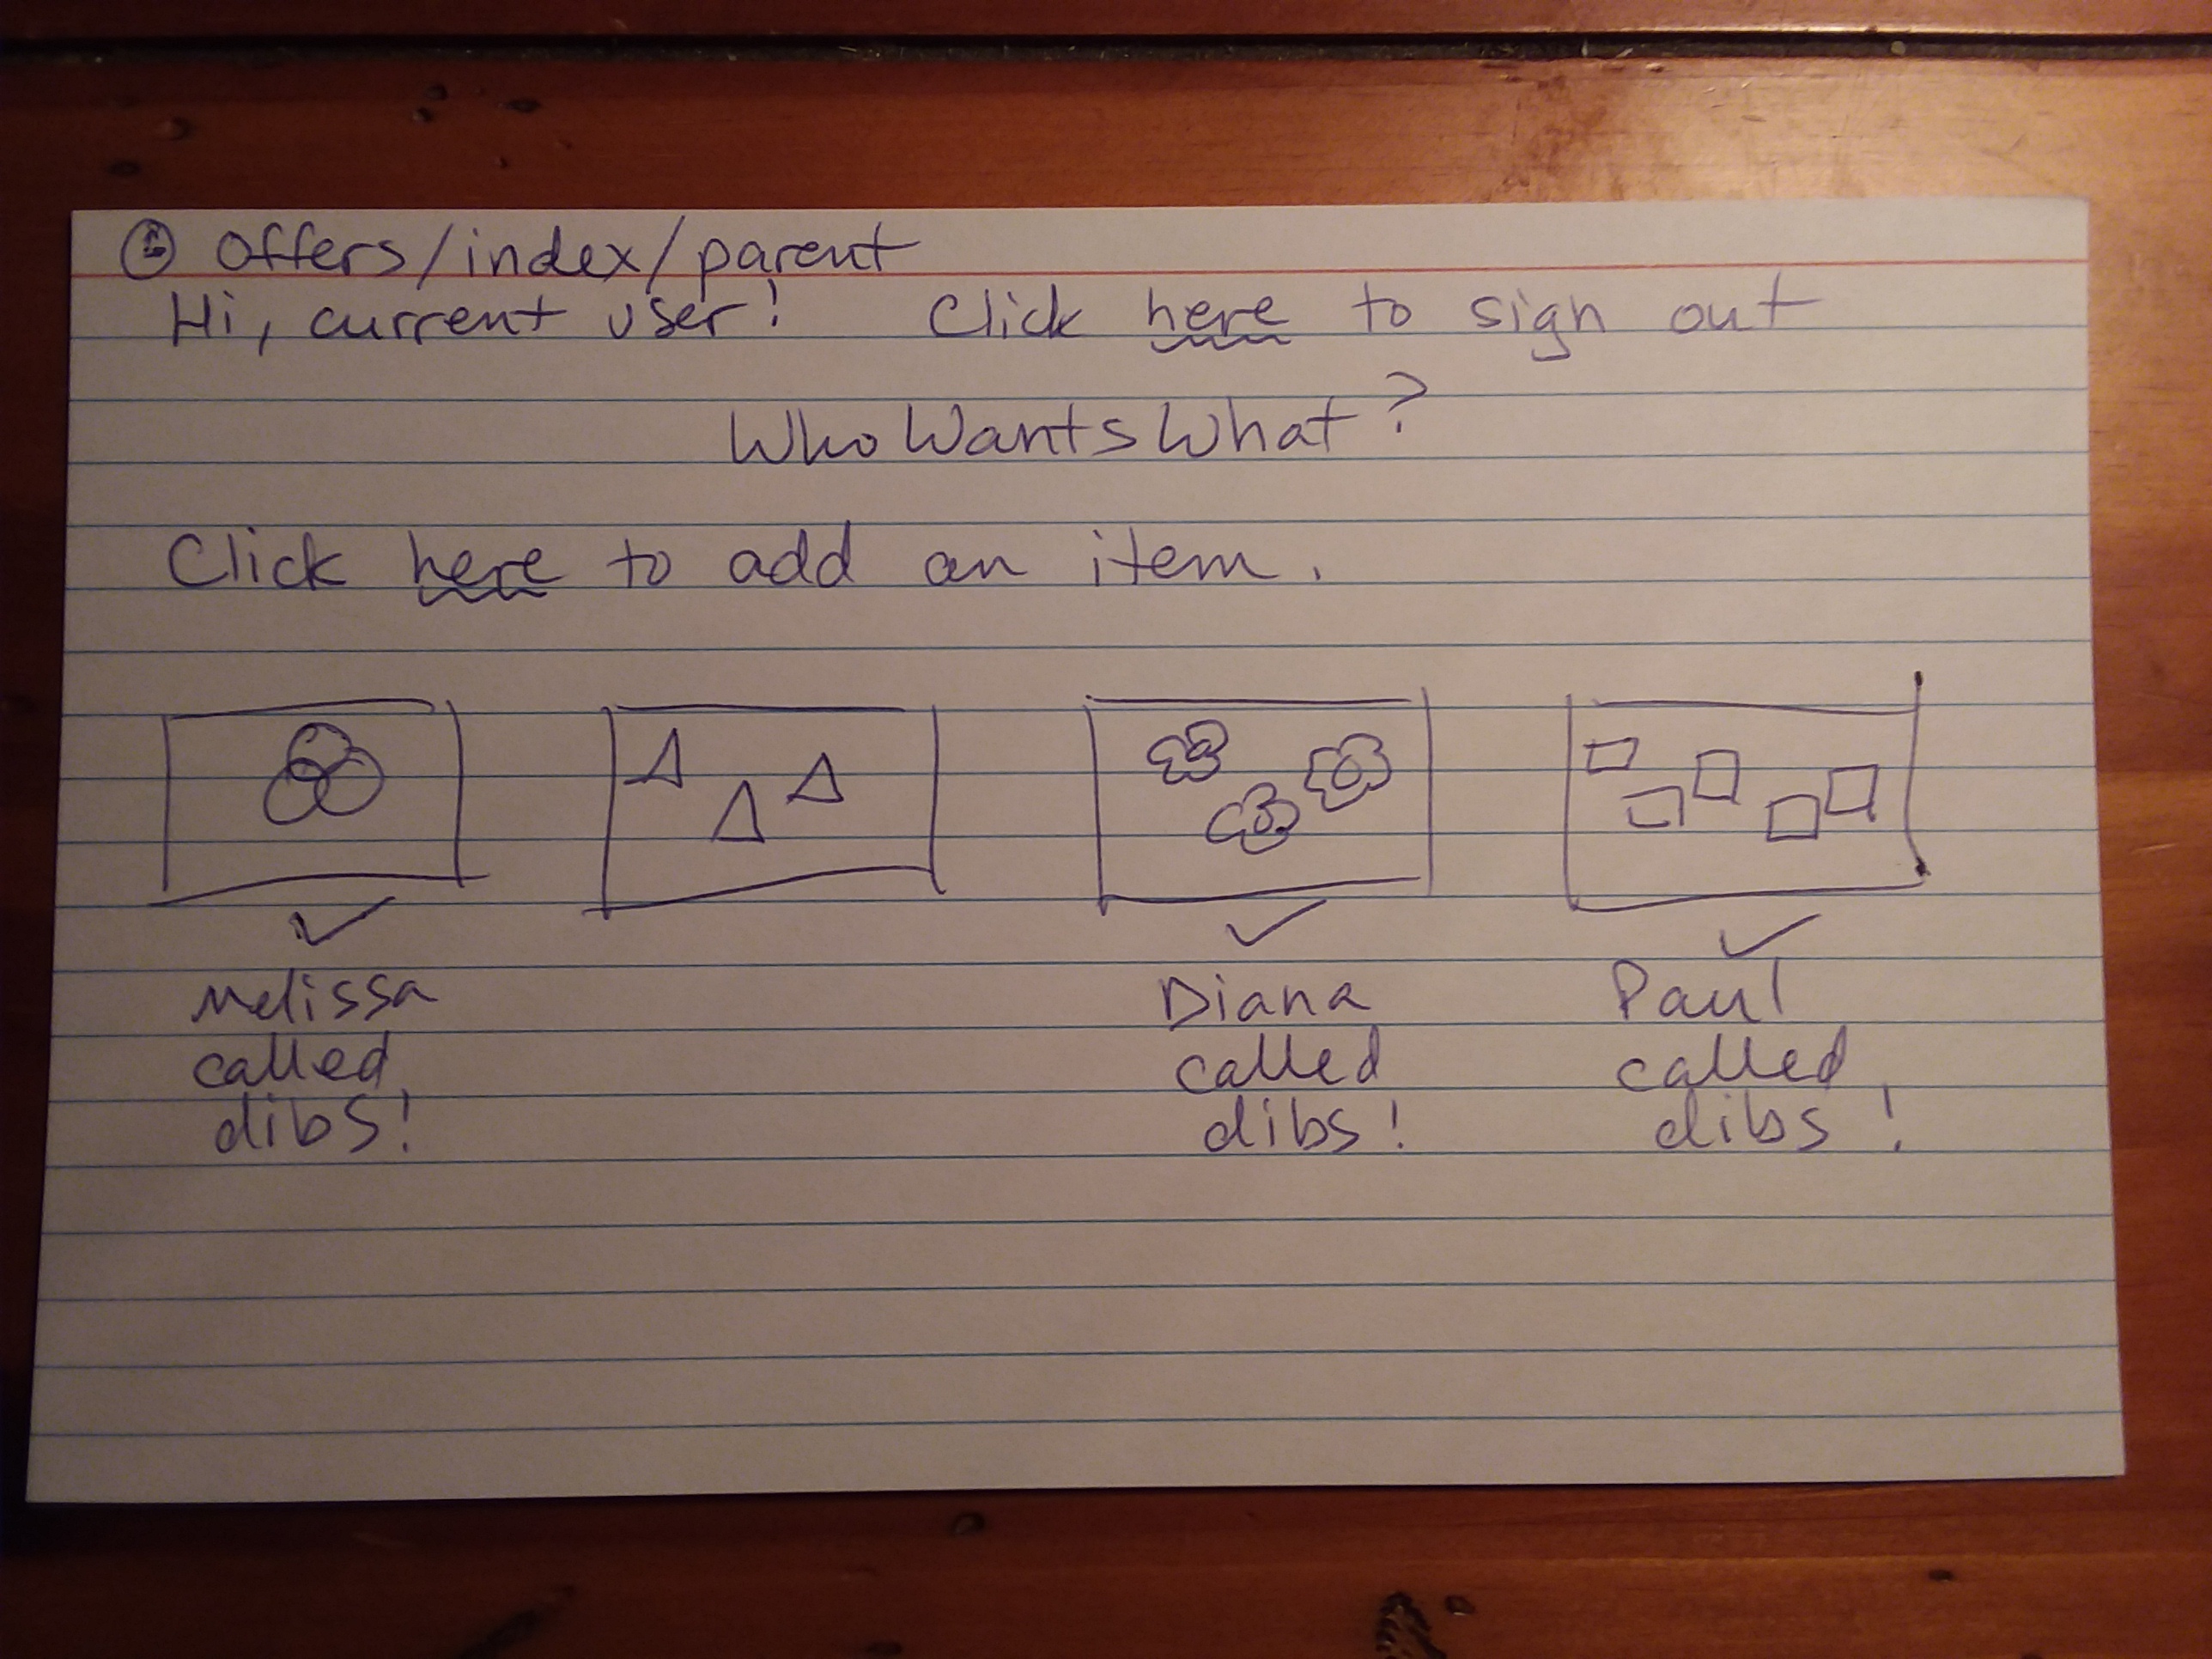 Offers/index/parent
Hi, current user! Click here to sign out
WhoWantsWhat?
Click here to add an item.
Melissa called dibs!
Diana called dibs!
Paul called dibs!